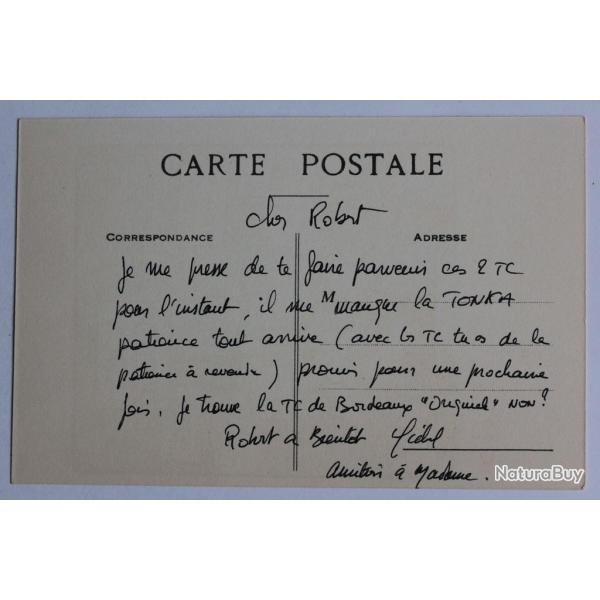 CARTE POSTALE
cher Robert
CORRESPONDANCE
ADRESSE
Je me presse de te faire parvenir ces 2 TC
pour l'instant, il me M manque la TONKA
patience tout arrive (avec les TC tu as de la
patience à revendre) promis pour une prochaine
fois, Je trouve la TC de Bordeaux "Original" NON?
Robert a Bientot
Amitiés à Madame.
NaturaBuy